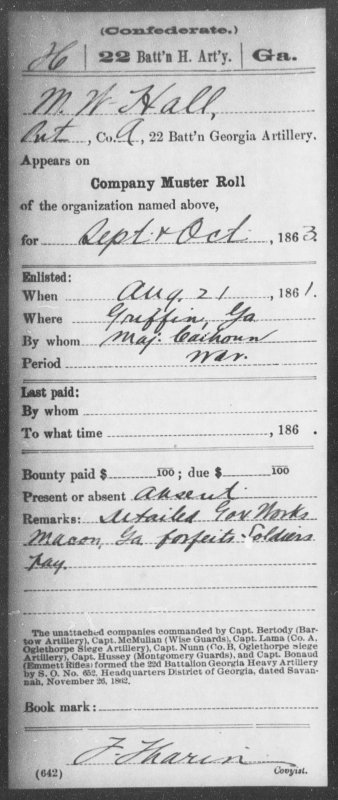 (Confederate.)
H | 22 Batt'n H. Art'y. | Ga.
M. W. Hall,
Pvt, Co. A, 22 Batt'n Georgia Artillery.
Appears on
Company Muster Roll
of the organization named above,
for Sept & Oct, 1863.
Enlisted:
When Aug. 21, 1861.
Where Griffin, Ga
By whom Maj. Calhoun
Period War.
Last paid:
By whom
To what time , 186 .
Bounty paid $ 100; due $ 100
Present or absent Absent
Remarks: Detailed Gov Works
Macon, Ga forfeits Soldiers
pay
The unattached companies commanded by Capt. Bertody (Bar-
tow Artillery), Capt. McMullan (Wise Guards), Capt. Lama (Co. A,
Oglethorpe Siege Artillery), Capt. Nunn (Co. B, Oglethorpe Siege
Artillery), Capt. Hussey (Montgomery Guards), and Capt. Bonaud
(Emmett Rifles) formed the 22d Battalion Georgia Heavy Artillery
by S. O. No. 652, Headquarters District of Georgia, dated Savan-
nah, November 26, 1862.
Book mark:
F. Tharin
(642) Copyist.